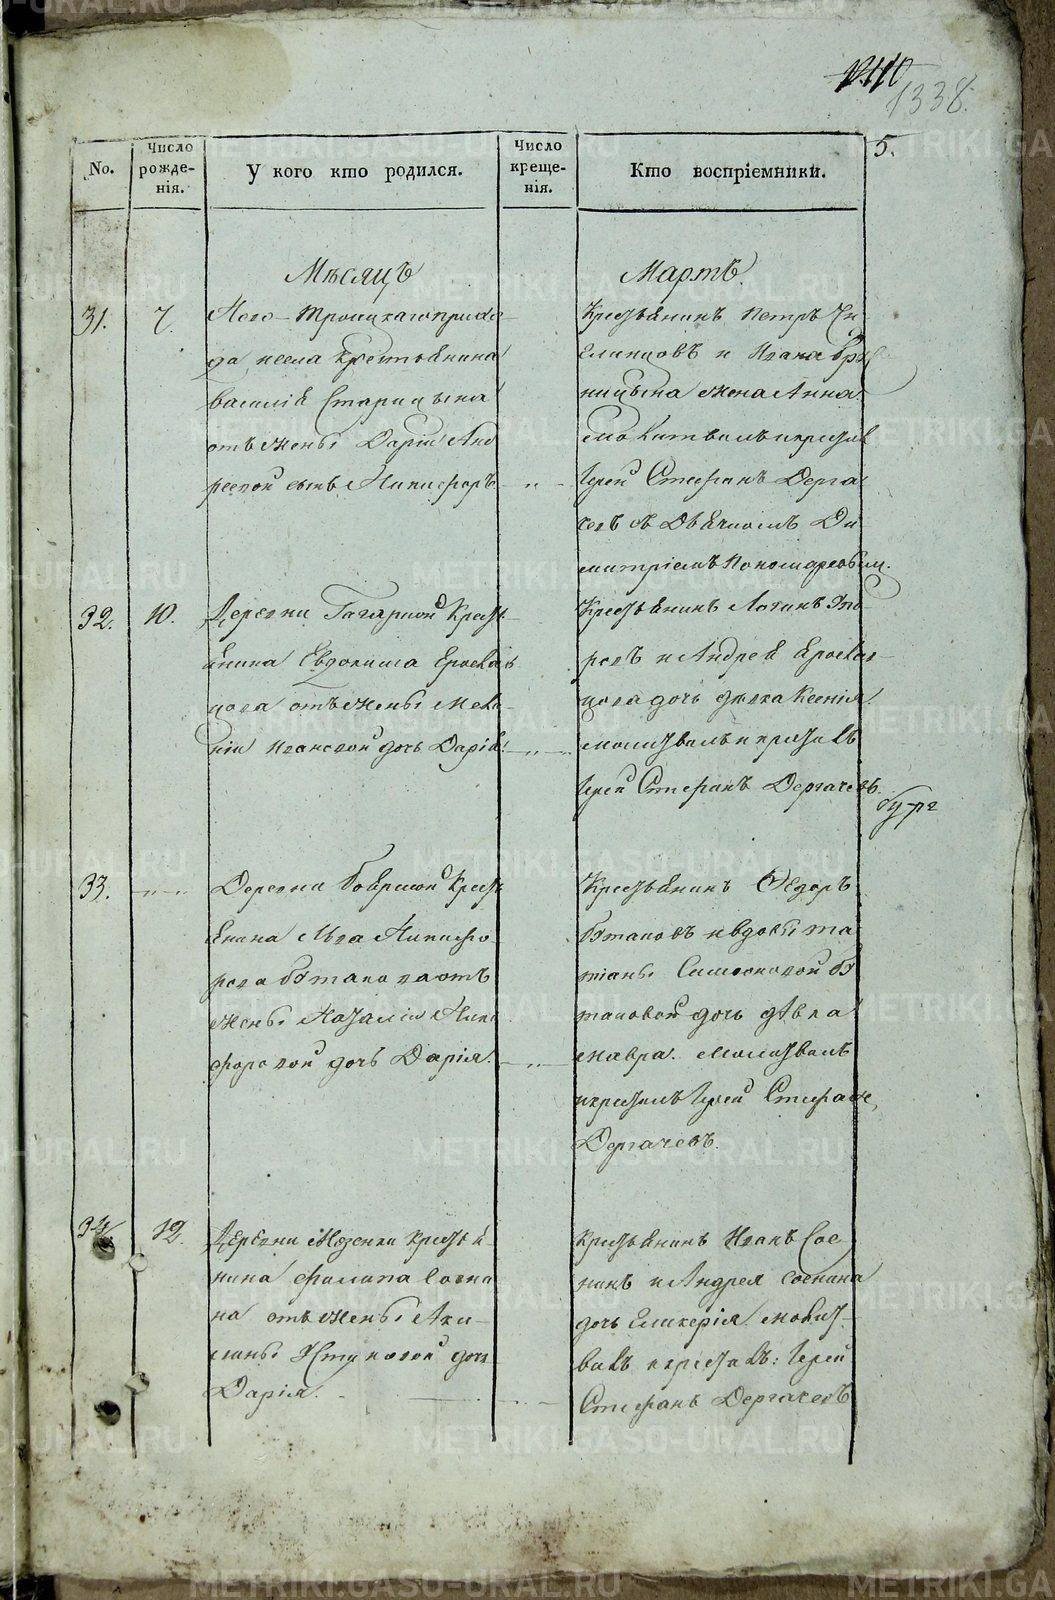 1338.
5.
No.
Число рожденія.
У кого кто родился.
Число крещенія.
Кто воспріемники.
Мѣсяцъ
Мартъ.
31.
7.
Ново-Троицкаго прихо-
да села крестьянина
Василія Старицына
отъ жены Даріи Анд
реевой сынъ Никифоръ
Крестьянинъ Петръ
и Ивана
ницына жена Анна
молитвилъ и крестилъ
Іерей Стефанъ Дерга
чевъ съ Дьячкомъ Ди
митріемъ Пономаревым.
32.
10.
Деревни Гагариной Крест
янина Евдокима
отъ жены Мела-
ніи Ивановой дочь Дарія.
Крестьянинъ Логинъ
и Андрея
дочь дѣвка Ксенія.
молитвилъ и крестилъ
Іерей Стефанъ Дергачевъ.
33.
Деревни Бояриной Крест
янина Льва Никифо
рова Ботакова отъ
жены Наталіи Ники
форовой дочь Дарія.
Крестьянинъ Ѳедоръ
Ботаковъ и вдовы Та
тіаны Симоновой Бо
таковой дочь дѣвка
Мавра. Молитвилъ
и крестилъ Іерей Стефанъ
Дергачевъ.
34.
12.
Деревни крестья
нина Филипа Сосни
на отъ жены Аки-
лины дочь
Дарія.
Крестьянинъ Иванъ Сос
нинъ и Андрея Соснина
дочь Гликерія. молит-
валъ и крестилъ: Іерей
Стефанъ Дергачевъ
METRIKI.GASO-URAL.RU